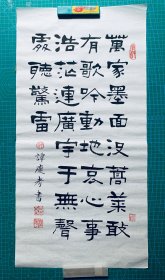 萬家墨面沒蒿萊敢
有歌吟動地哀心事
浩茫連廣宇于無聲
處聽驚雷
書